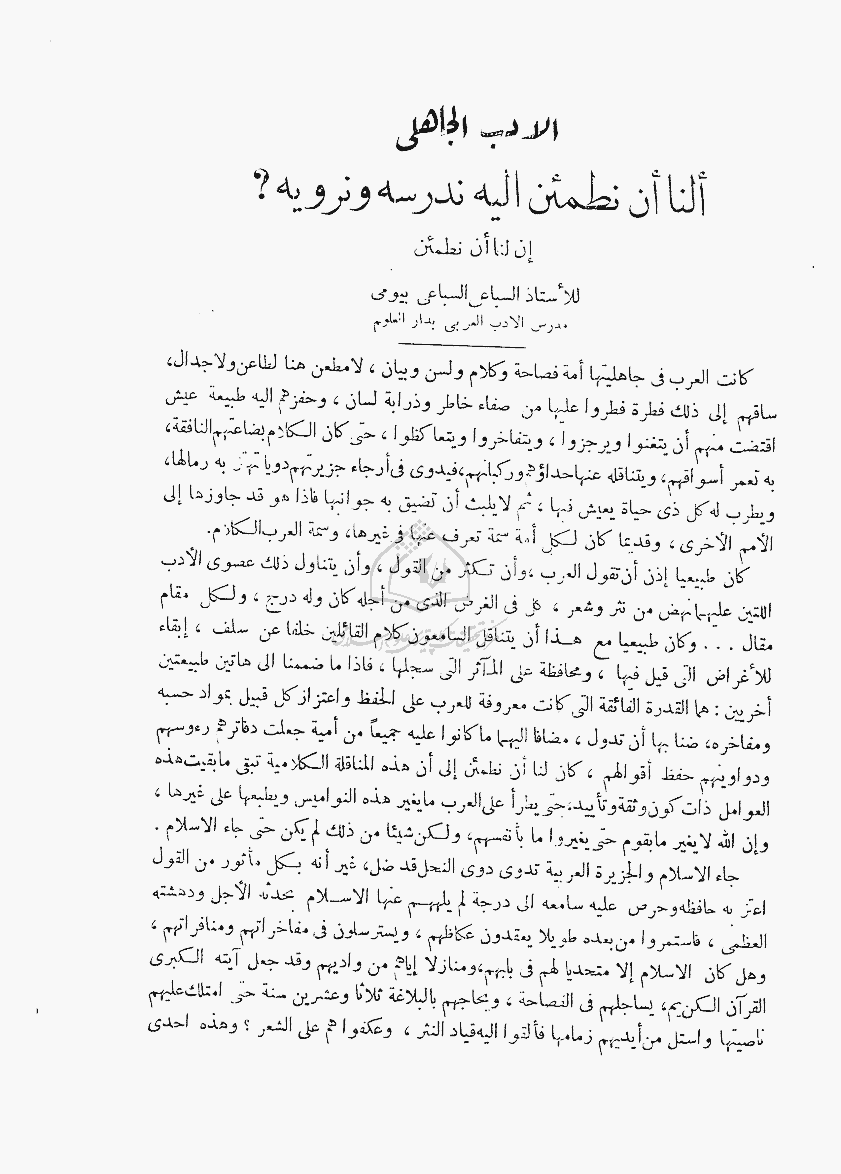 الادب الجاهلى
ألنا أن نطمئن اليه ندرسه ونرويه ؟
إن لنا أن نطمئن
للأستاذ السباعى السباعى بيومى
مدرس الادب العربى بدار العلوم
كانت العرب فى جاهليتها أمة فصاحة وكلام ولسن وبيان ، لا مطعن هنا لطاعن ولا جدال،
ساقهم إلى ذلك فطرة فطروا عليها من صفاء خاطر وذرابة لسان ، وحفزهم اليه طبيعة عيش
اقتضت منهم أن يتغنوا ويرجزوا ، ويتفاخروا ويتعاكظوا ، حتى كان الكلام بضاعتهم النافقة،
به تعمر أسواقهم، ويتناقله عنها حداؤهم وركبانهم، فيدوى فى أرجاء جزيرتهم دويا تهتز به رمالها،
ويطرب له كل ذى حياة يعيش فيها ، ثم لا يلبث أن تضيق به جوانبها فاذا هو قد جاوزها إلى
الأمم الأخرى ، وقديما كان لكل أمة سمة تعرف عنها فى غيرها، وسمة العرب الكلام.
كان طبيعيا إذن أن تقول العرب ،وأن تكثر من القول ، وأن يتناول ذلك عضوى الأدب
اللتين عليهما نهض من نثر وشعر ، كل فى الغرض الذى من أجله كان وله درج ، ولكل مقام
مقال ... وكان طبيعيا مع هذا أن يتناقل السامعون كلام القائلين خلفا عن سلف ، إبقاء
للأغراض التى قيل فيها ، ومحافظة على المآثر التى سجلها ، فاذا ما ضممنا الى هاتين طبيعتين
أخريين : هما القدرة الفائقة التى كانت معروفة للعرب على الحفظ واعتزاز كل قبيل بمواد حسبه
ومفاخره، ضنا بها أن تدول ، مضافا اليهما ما كانوا عليه جميعاً من أمية جعلت دفاترهم رءوسهم
ودواوينهم حفظ أقوالهم ، كان لنا أن نطمئن إلى أن هذه المناقلة الكلامية تبقى ما بقيت هذه
العوامل ذات كون وثقة وتأييد، حتى يطرأ على العرب ما يغير هذه النواميس ويطبعها على غيرها ،
وإن الله لا يغير ما بقوم حتى يغيروا ما بأنفسهم، ولكن شيئا من ذلك لم يكن حتى جاء الاسلام .
جاء الاسلام والجزيرة العربية تدوى دوى النحل قد ضل، غير أنه بكل مأثور من القول
اعتز به حافظه وحرص عليه سامعه الى درجة لم يلههم عنها الاسلام بحدثه الأجل ودهشته
العظمى ، فاستمروا من بعده طويلا يعقدون عكاظهم ، ويسترسلون فى مفاخراتهم ومنافراتهم ،
وهل كان الاسلام إلا متحديا لهم فى بابهم، ومنازلا إياهم من واديهم وقد جعل آيته الكبرى
القرآن الكريم، يساجلهم فى الفصاحة ، ويحاجهم بالبلاغة ثلاثا وعشرين سنة حتى امتلك عليهم
ناصيتها واستل من أيديهم زمامها فألقوا اليه قياد النثر ، وعكفوا هم على الشعر ؟ وهذه احدى